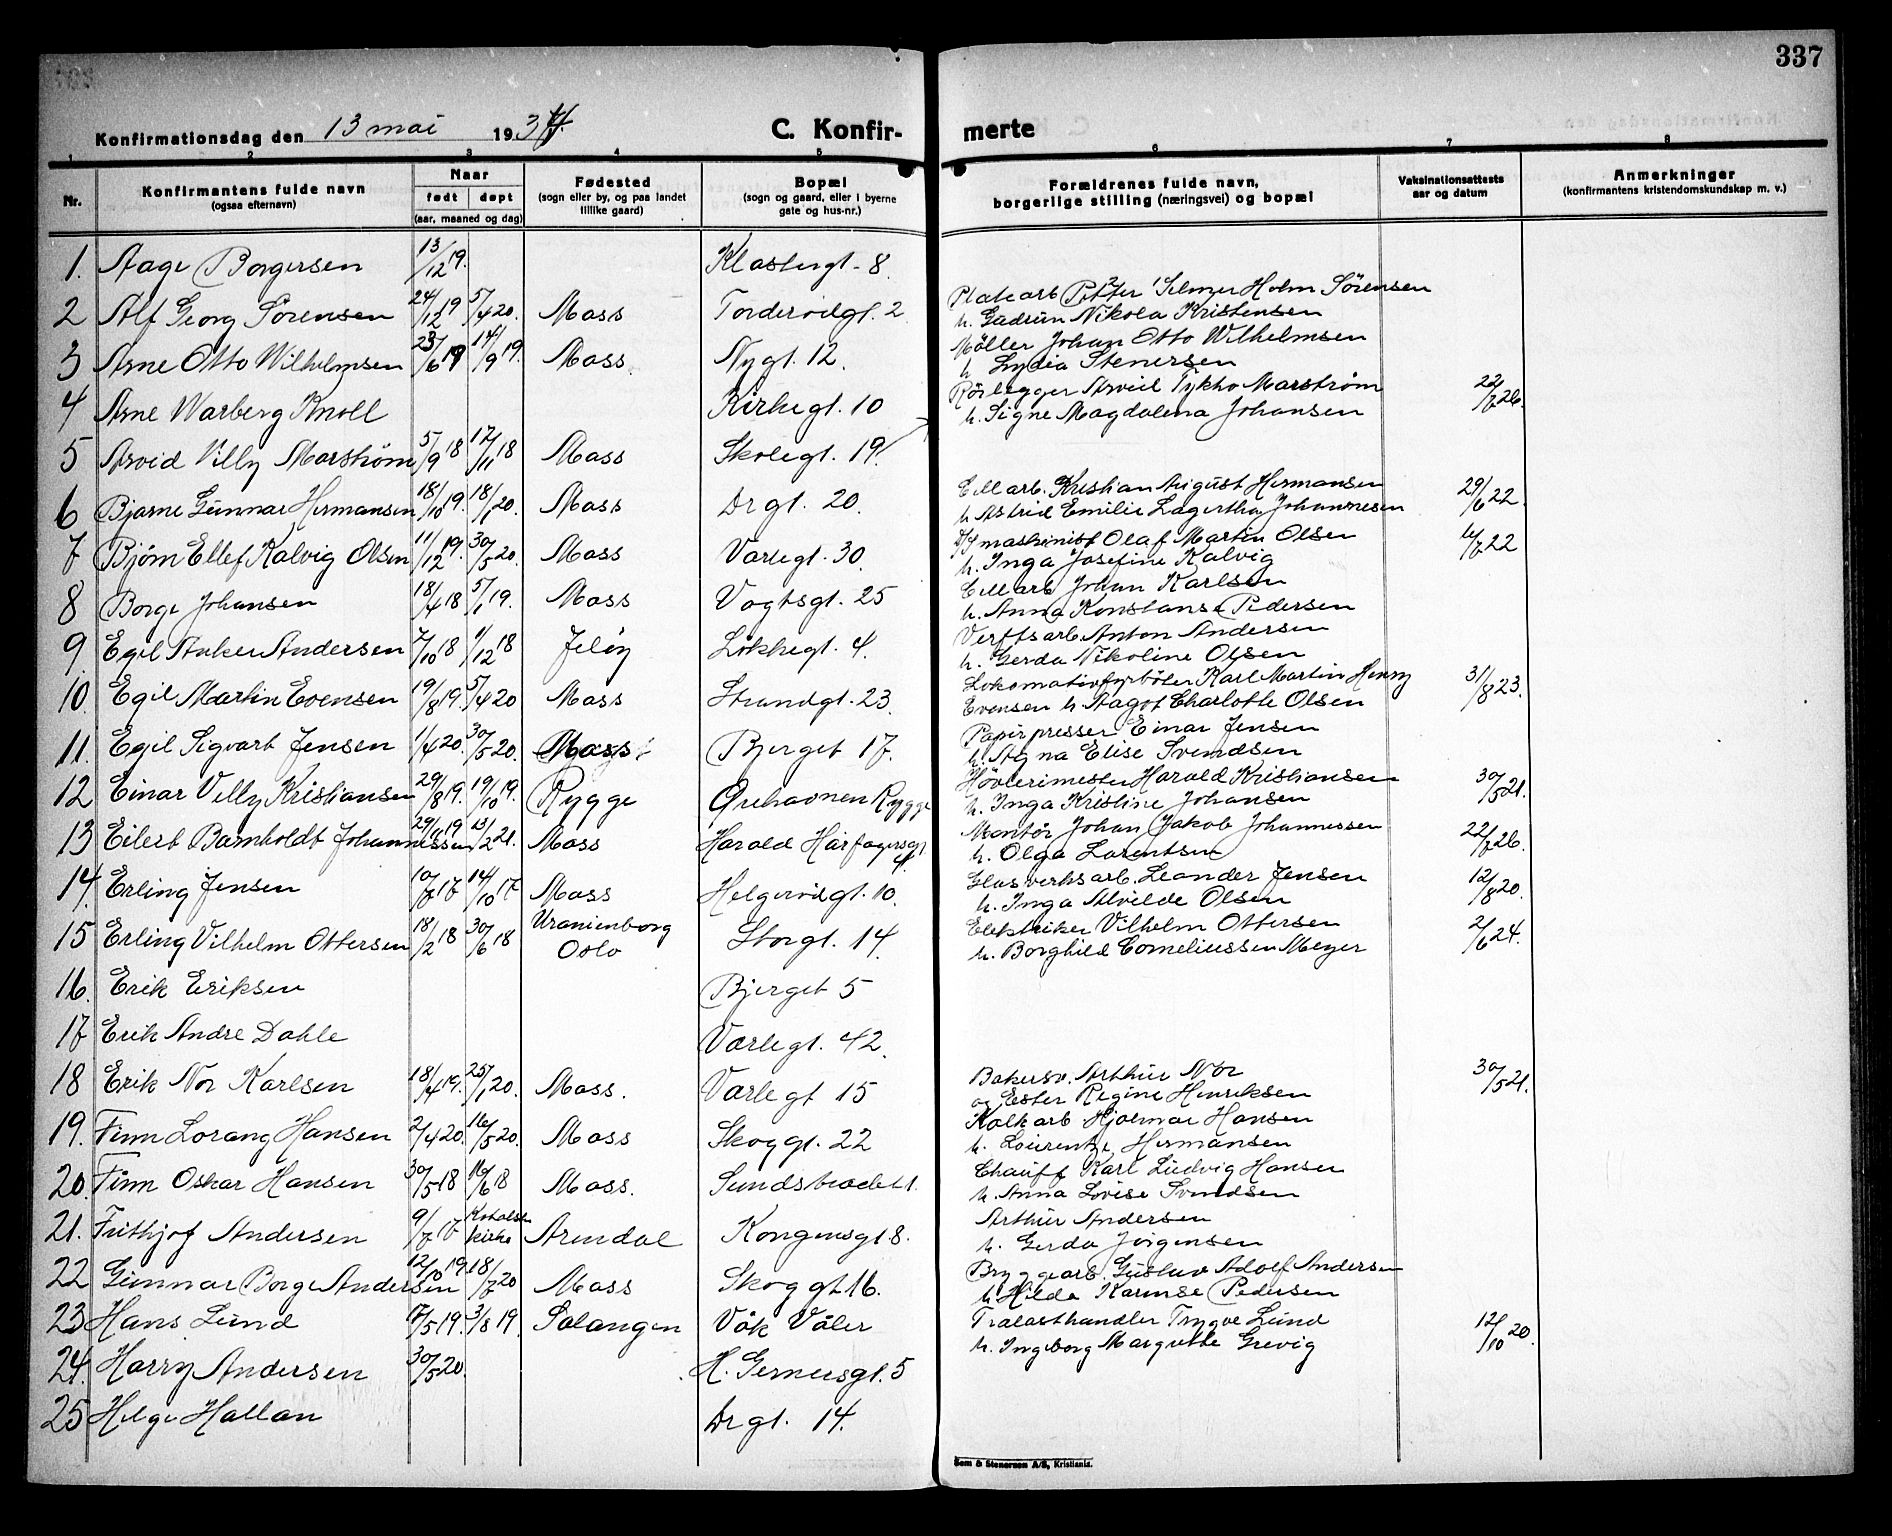 337
Konfirmationsdag den 13 mai 1934.
C. Konfirmerte
1 2 3 4 5 6 7 8
Nr.
Konfirmantens fulde navn
(ogsaa efternavn)
Naar
født døpt
(aar, maaned og dag)
Fødested
(sogn eller by, og paa landet
tillike gaard)
Bopæl
(sogn og gaard, eller i byerne
gate og hus-nr.)
Forældrenes fulde navn,
borgerlige stilling (næringsvei) og bopæl
Vaksinationsattests
aar og datum
Anmerkninger
(konfirmantens kristendomskundskap m. v.)
1. Aage Borgersen 13/12 19. Klostergt. 8.
2 Alf Georg Sørensen 24/12 19 5/4 20. Moss Torderødgt. 2 Platearb Petter Selmer Holm Sörensen
h. Gudrun Nikola Kristensen
3 Arne Otto Wilhelmsen 23/6 19 14/9 19. Moss. Nygt. 12. Möller Johan Otto Wilhelmsen
h Lydia Stenersen
4 Arne Warberg Knoll Kirkegt. 10
5 Arvid Villy Marström 5/9 18 17/11 18 Moss Skolegt. 19. Rörlegger Arvid Tykho Marström 22/7 26.
h. Signe Magdalena Johansen
6 Bjarne Gunnar Hermansen 18/10 19. 18/1 20. Moss Drgt. 20. Cellarb. Kristian August Hermansen 29/6 22.
h Astrid Emilie Lagertha Johannesen
7 Bjørn Ellef Kalvig Olsen 11/12 19. 30/5 20. Moss Varlegt. 30. D/S maskinist Olaf Martin Olsen 10/7 22
h. Inga Josefine Kalvig
8 Borge Johansen 18/4 18 5/1 19. Moss Vogtsgt. 25 Cellarb Johan Karlsen
h. Anna Konstanse Pedersen
9. Egil Anker Andersen 7/10 18 1/12 18 Jeløy Løkkegt. 4. Verftsarb. Anton Andersen
h. Gerda Nikoline Olsen
10. Egil Martin Evensen 19/8 19. 5/4 20 Moss Strandgt. 23. Lokomotivfyrböter Karl Martin Henry 31/8 23.
Evensen h. Aagot Charlotte Olsen
11. Egil Sigvart Jensen 1/4 20. 30/5 20. Moss Bjerget 17. Papirpresser Einar Jensen
h. Agna Elise Svendsen
12 Einar Villy Kristiansen 29/8 19. 19/10 19. Rygge Ørehavnen Rygge Høvlerimester Harald Kristiansen 30/5 21.
h. Inga Kristine Johansen
13 Eilert Barnholdt Johannessen 29/11 19 13/2 21. Moss Harald Hårfagersgt. 4. Montör Johan Jakob Johannessen 22/7 26.
h. Olga Lorentsen
14. Erling Jensen 10/7 17 14/10 17 Moss Helgerødgt. 10. Glasverksarb. Leander Jensen 12/8 20.
h. Inga Alvilde Olsen
15 Erling Vilhelm Ottersen 18/2 18 30/6 18 Uranienborg
Oslo Storgt. 14. Elektriker Vilhelm Ottersen 2/6 24.
h. Borghild Corneliussen Meyer
16. Erik Eriksen Bjerget 5
17 Erik Andre Dahle Varlegt. 42.
18 Erik Nor Karlsen 18/4 19. 25/1 20. Moss. Varlegt 15 Bakersv. Arthur Nor 30/5 21.
og Ester Regine Henriksen
19. Finn Lorang Hansen 2/4 20. 16/5 20. Moss Skoggt. 22 Kalkarb Hjalmar Hansen
h. Hermansen
20. Finn Oskar Hansen 30/5 18 16/6 18 Moss. Chauff Karl Ludvig Hansen
h. Anna Lovise Svendsen
21. Frithjof Andersen 9/7 17 kirke Arendal Kongensgt 8. Arthur Andersen
h. Gerda Jørgensen
22 Gunnar Borge Andersen 12/10 19 18/7 20 Moss Skoggt 16. Bryggearb. Gustav Adolf Andersen
h. Hilda Karense Pedersen
23 Hans Lund 17/5 19. 3/8 19. Salangen Våk Våler Trelasthandler Trygve Lund 12/10 20.
h. Ingeborg Margrethe Grevig
24. Harry Andersen 30/5 20. H. Gernersgt. 5
25 Helge Hallan Drgt. 14.
Sem & Stenersen A/S, Kristiania.